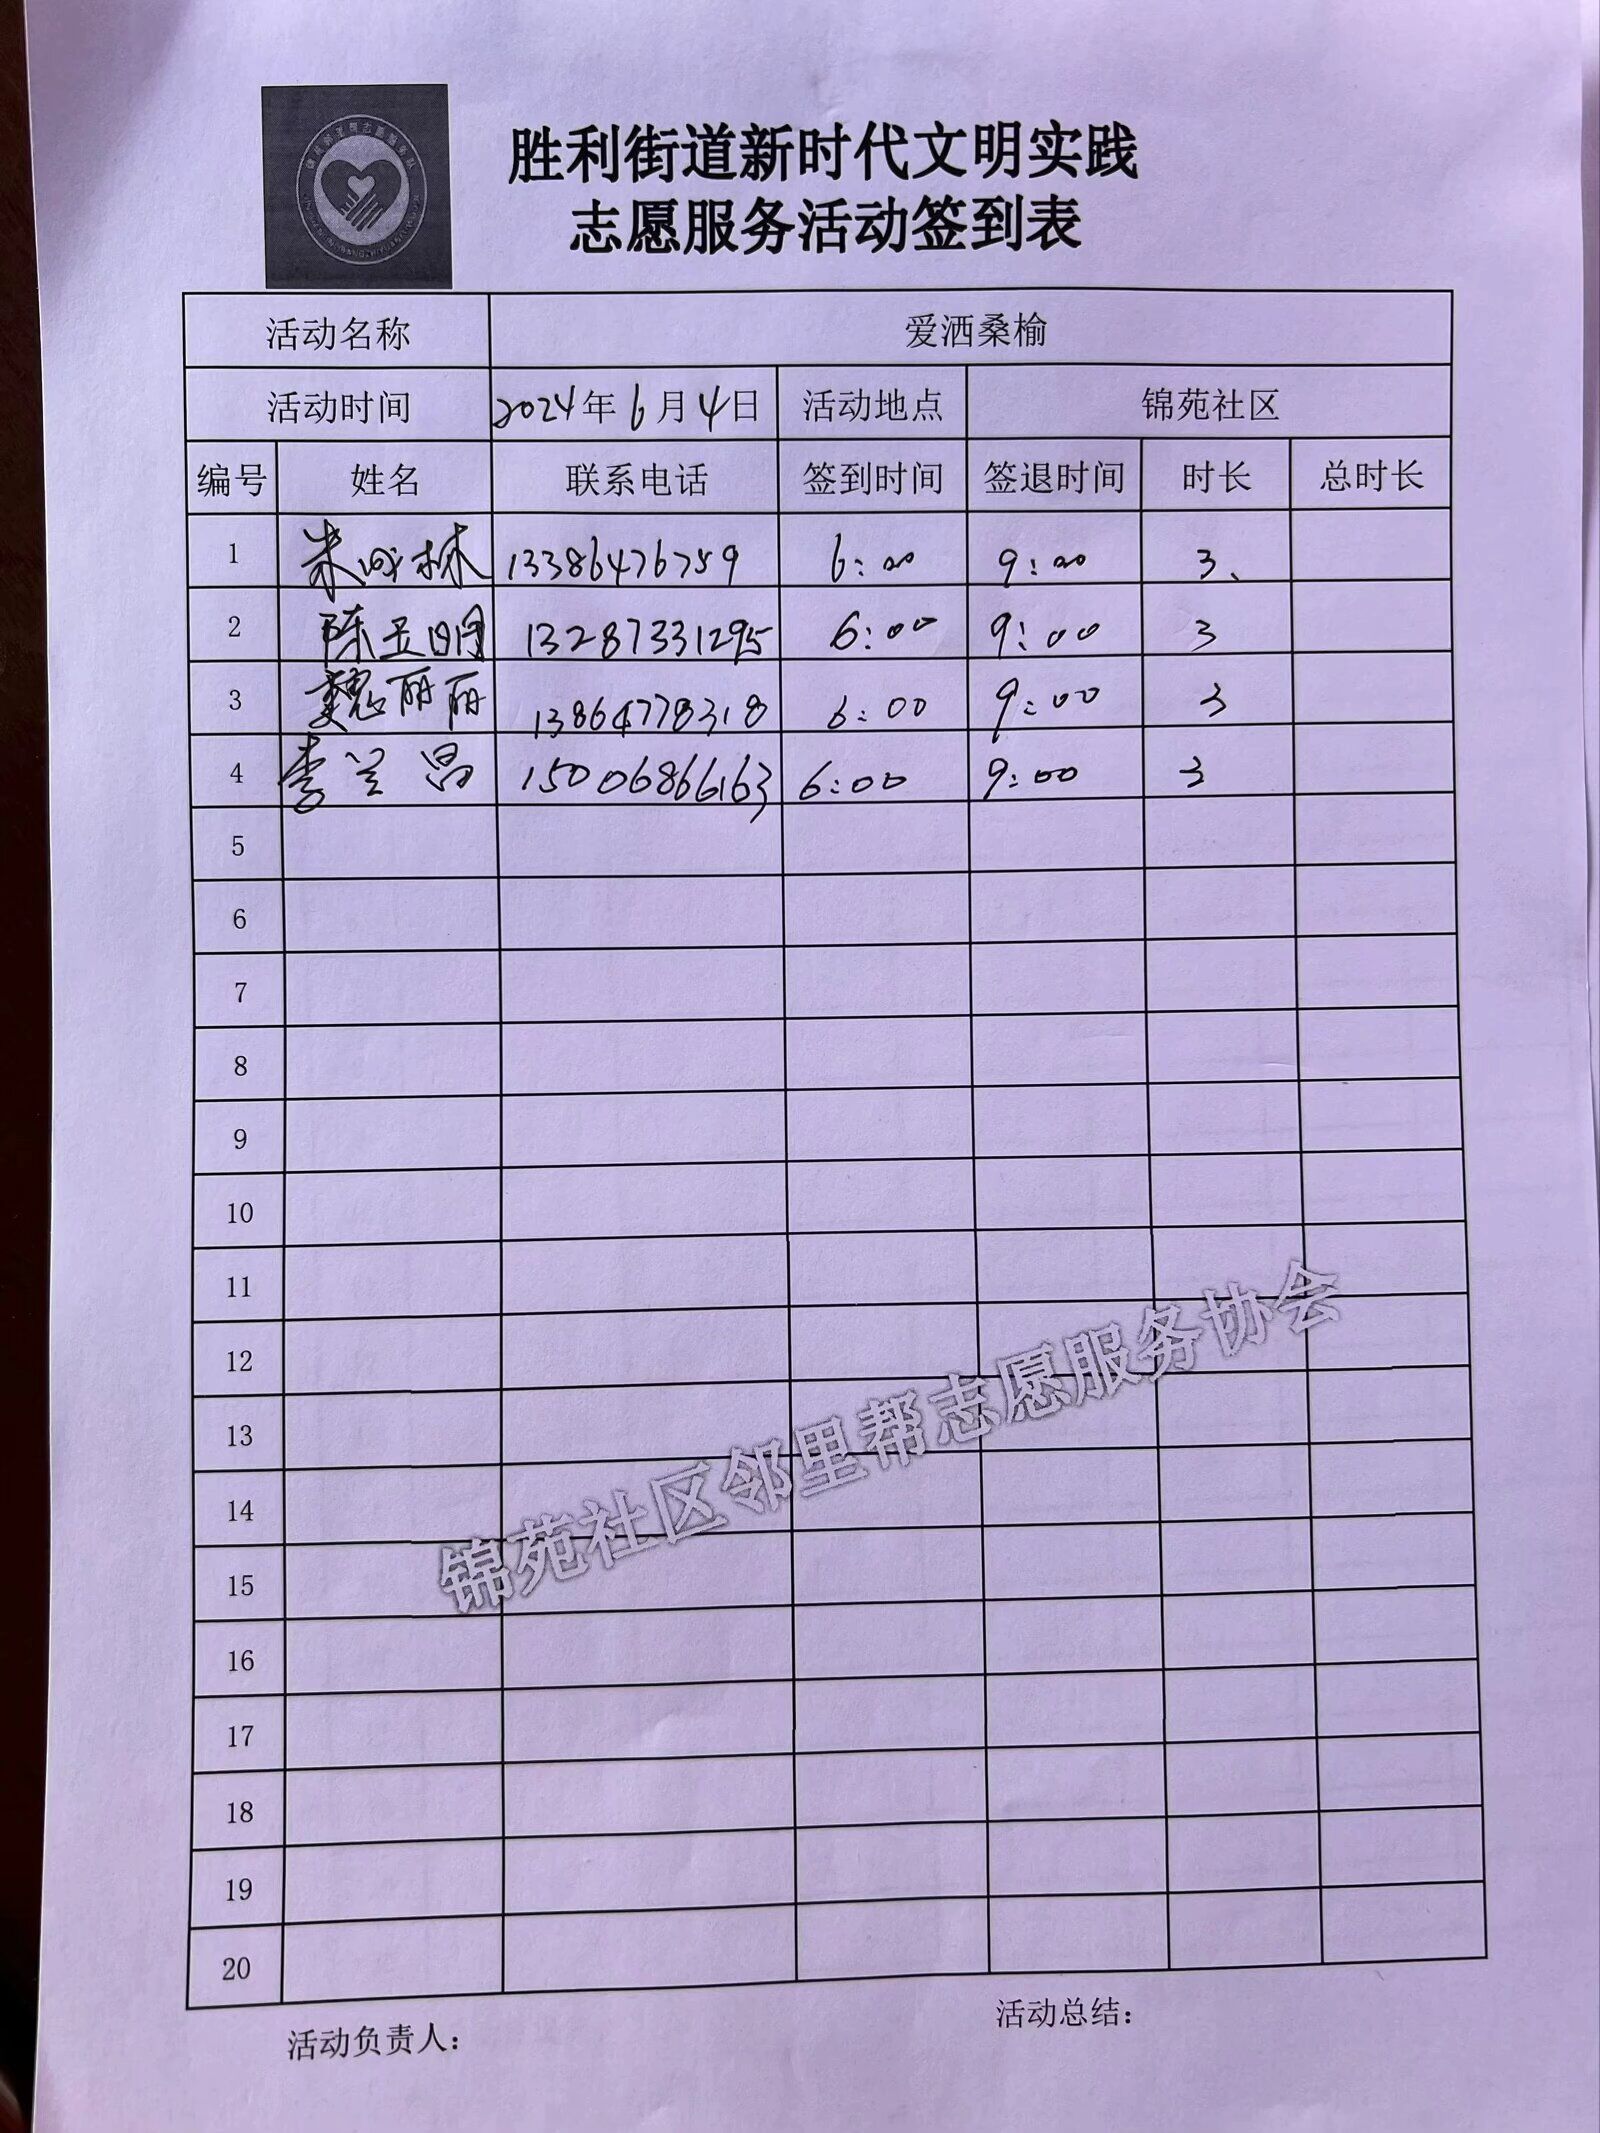 胜利街道新时代文明实践
志愿服务活动签到表
活动名称 爱洒桑榆
活动时间 2024年6月4日 活动地点 锦苑社区
编号 姓名 联系电话 签到时间 签退时间 时长 总时长
1 林 13386476759 6:00 9:00 3、
2 陈玉明 13287331295 6:00 9:00 3
3 魏丽丽 13864778318 6:00 9:00 3
4 李兰昌 15006866163 6:00 9:00 3
5
6
7
8
9
10
11
12
13
14
15
16
17
18
19
20
锦苑社区邻里帮志愿服务协会
活动负责人：
活动总结：